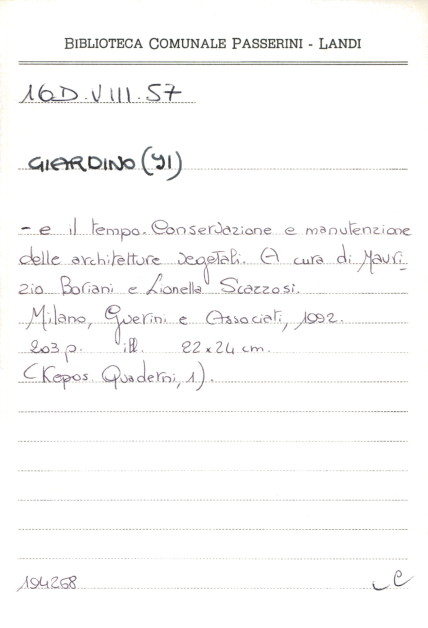 BIBLIOTECA COMUNALE PASSERINI - LANDI
16D.VIII.57
GIARDINO (Il)
- e il tempo. Conservazione e manutenzione
delle architetture vegetali. A cura di Mauri-
zio Boriani e Lionella Scazzosi.
Milano, Guerini e Associati, 1992.
203 p. ill. 22x24 cm.
(Kepos. Quaderni, 1).
194268